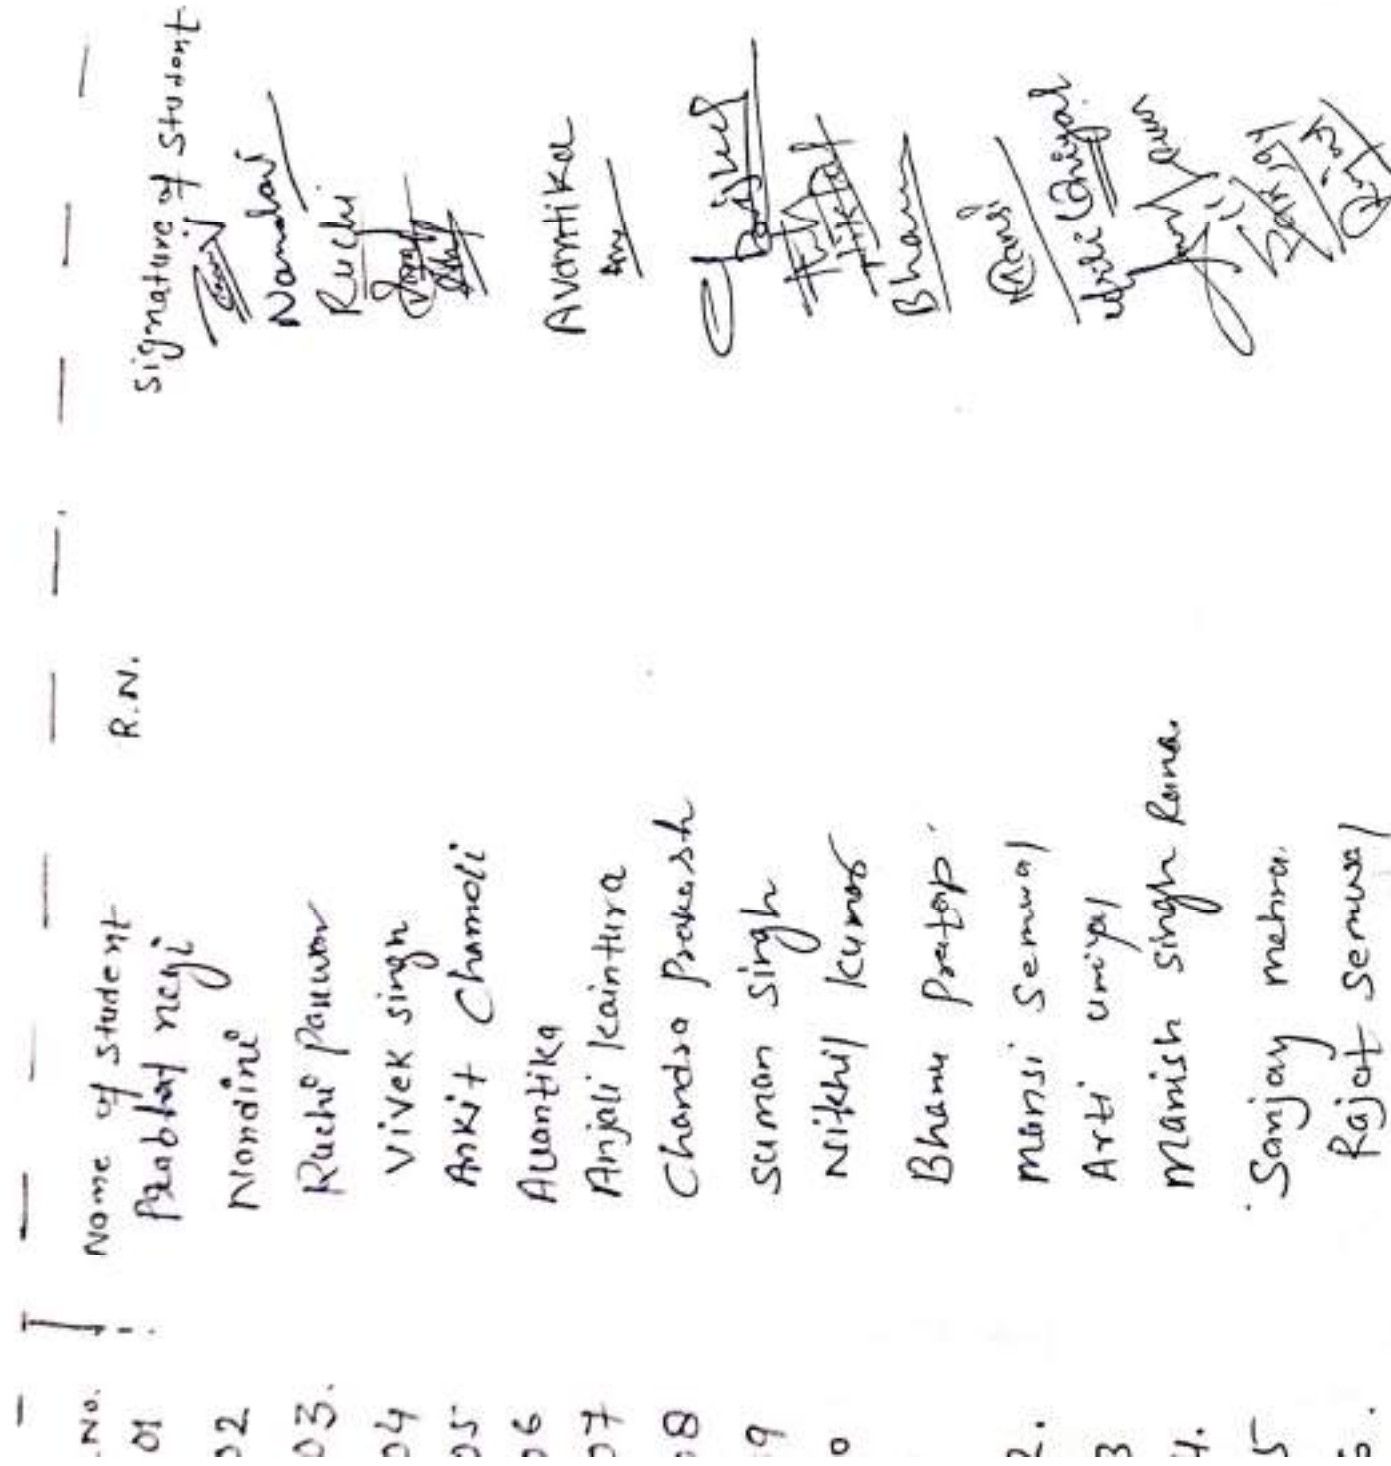 .No. Name of student R.N. Signature of Student
01 Prabhat negi
02 Nandini
03. Ruchi Panwar Ruchi
04 Vivek singh
05 Ankit Chamoli
06 Avantika Avantika
07 Anjali Kaintura
08 Chandra Prakash
9 Suman Singh
0 Nikhil Kumar
Bhanu Pratap. Bhanu
2. Mansi Semwal Mansi
3 Arti uniyal
4. Manish Singh Rana.
5 Sanjay mehra. Sanjay
6. Rajat Semwal Rajat